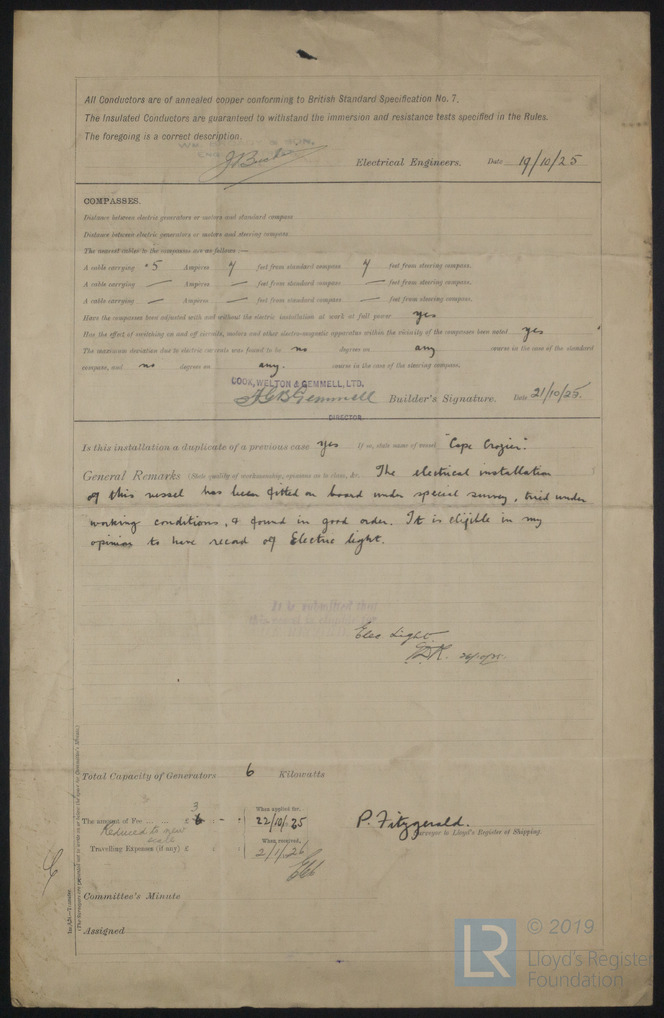 All Conductors are of annealed copper conforming to British Standard Specification No. 7.
The Insulated Conductors are guaranteed to withstand the immersion and resistance tests specified in the Rules.
The foregoing is a correct description.
Electrical Engineers. Date 19/10/25
COMPASSES.
Distance between electric generators or motors and standard compass
Distance between electric generators or motors and steering compass
The nearest cables to the compasses are as follows:—
A cable carrying ·5 Ampères 7 feet from standard compass 7 feet from steering compass.
A cable carrying — Ampères — feet from standard compass — feet from steering compass.
A cable carrying — Ampères — feet from standard compass — feet from steering compass.
Have the compasses been adjusted with and without the electric installation at work at full power yes
Has the effect of switching on and off circuits, motors and other electro-magnetic apparatus within the vicinity of the compasses been noted yes
The maximum deviation due to electric currents was found to be no degrees on any course in the case of the standard
compass, and no degrees on any. course in the case of the steering compass.
COOK, WELTON & GEMMELL, LTD.
Gemmell Builder's Signature. Date 21/10/25.
DIRECTOR.
Is this installation a duplicate of a previous case yes If so, state name of vessel "Cape Crozier".
General Remarks (State quality of workmanship, opinions as to class, &c. The electrical installation
of this vessel has been fitted on board under special survey, tried under
working conditions, & found in good order. It is eligible in my
opinion to have record of Electric light.
It is submitted that
this vessel is eligible for
Elec Light
Total Capacity of Generators 6 Kilowatts
3
The amount of Fee ... ... £ 6 : - : When applied for, 22/10/25
Reduced to new
scale
Travelling Expenses (if any) £ : : When received, 2/1/26
P. Fitzgerald.
Surveyor to Lloyd's Register of Shipping.
Committee's Minute
Assigned
LR © 2019
Lloyd's Register
Foundation